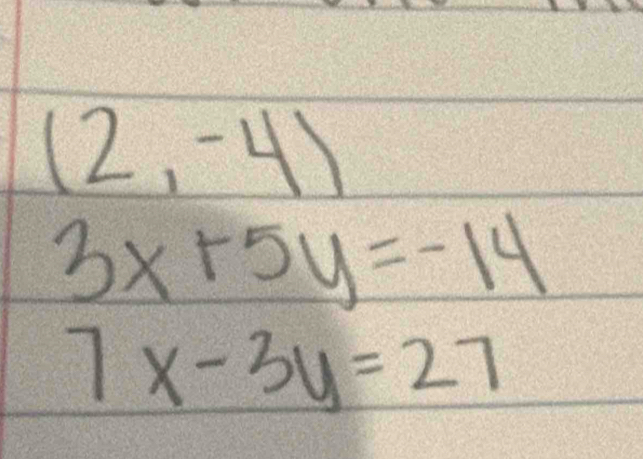 (2, -4)
3x + 5y = -14
7x - 3y = 27